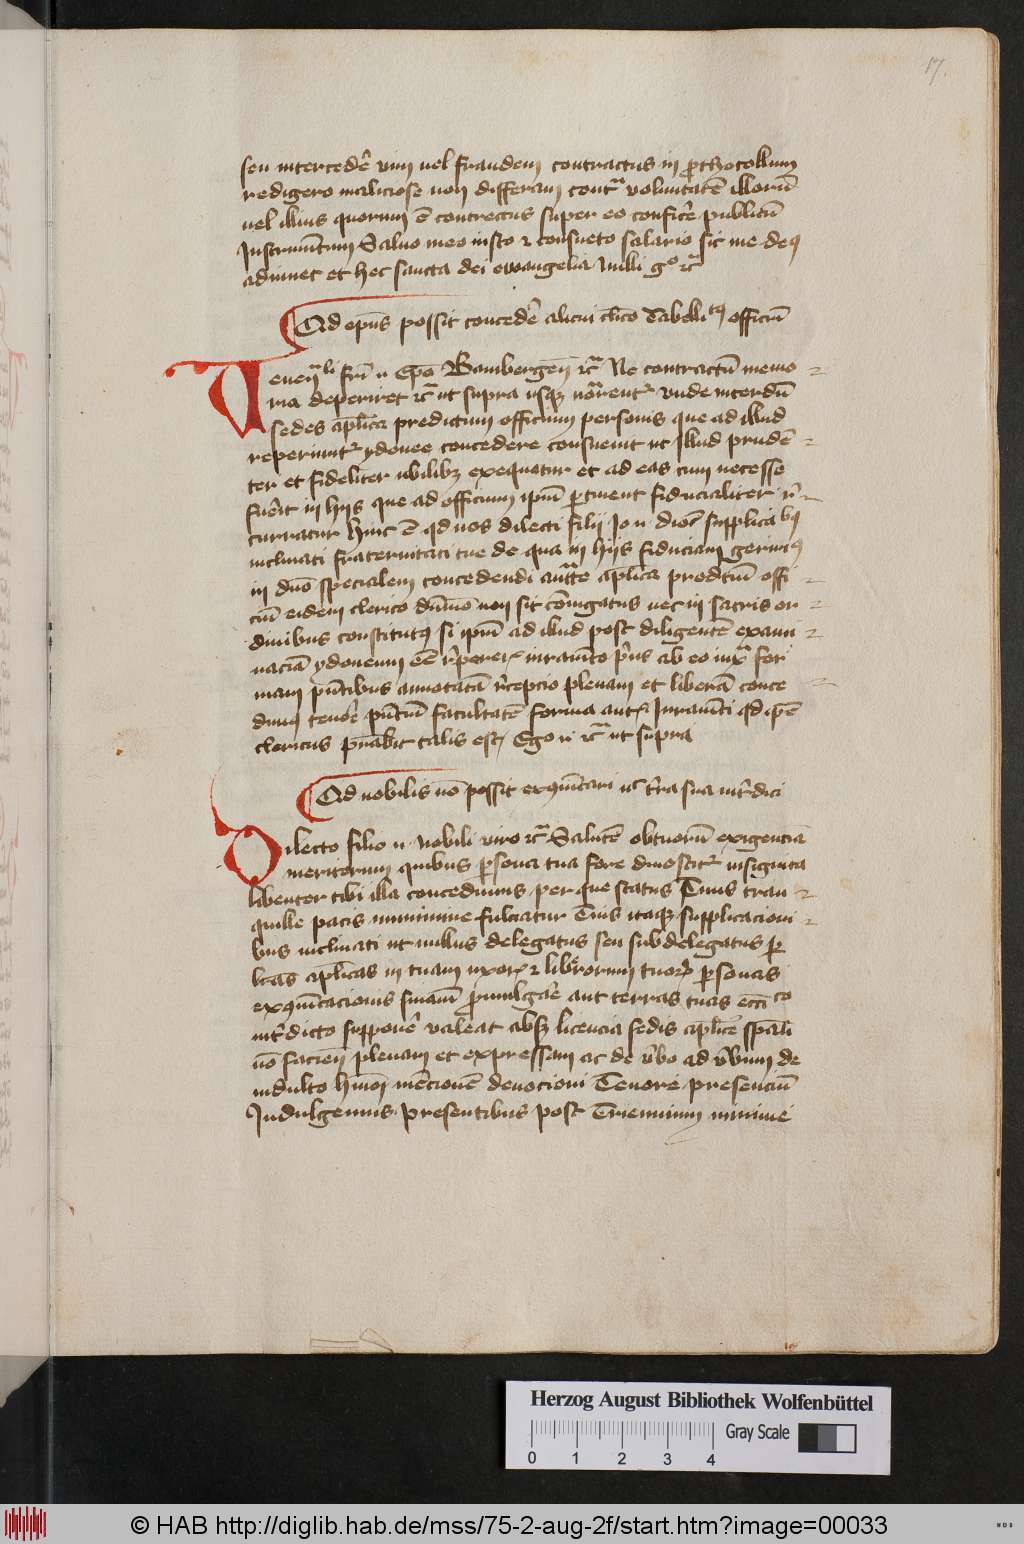 17.
seu intercedẽ vim uel fraudem contractus in ꝓthocollum
redigero maliciose non differam contra voluntatẽ illorũ
uel illius quorum ẽ contractus super eo conficẽ publicũ
Instrumẽtum Saluo meo iusto ⁊ consueto salario sic me deꝰ
adiuuet et hec sancta dei ewangelia Nulli gͦ ⁊c̃
Qd epũs possit concedẽ alicui cl̃ico Tabelli tꝰ officiũ
Veneli fr̃i n Ep̃o Bambergeñ ⁊c̃ Ne contractũ memo
ria deperiret ⁊c̃ ut supra usqꝫ Vnde interdũ
sedes ap̃lica predictum officium personis que ad illud
reperiunt̃ ydonee concedere consueuit ut illud prudẽ
ter et fideliter ubilibꝫ exequatur et ad eas cum necesse
fuẽit in hijs que ad officium ip̃m ꝑtinent fiducialiter r̃
curratur hinc ẽ qd nos dilecti filij Jo n dioc̃ supplica bꝰ
inclinati fraternitati tue de qua in hijs fiduciam gerimꝰ
in dño specialem concedendi auc̃te ap̃lica predc̃m offi
ciũ eidem clerico dũmodo non sit cõiugatus nec in sacris or
dinibus constitutꝰ si ip̃m ad illud post diligentẽ exami
naciõ ydoneum eẽ r̃pereris iuramẽto pr̃us ab eo iuxta for
mam pñtibus annotatã r̃cepcio plenam et liberã conce
dimꝰ tenoẽ pñtiũ facultatẽ Forma aut Juramẽti qd ip̃e
clericus prestabit talis est Ego n ⁊c̃ ut supra
Qd nobilis nõ possit excõicari ul̃ tr̃a sua int̃dici
Dilecto filio n Nobili viro ⁊c̃ Salutẽ obtuorũ exigenciã
meritorum quibus ꝑsona tua fore dinoscit̃ insignita
libenter tibi illa concedimus per que status Tuus tran
quille pacis munimine fulciatur Tuis itaqꝫ supplicacioni
bus inclinati ut nullus delegatus seu subdelegatus ꝑ
lr̃as ap̃licas in tuam uxor̃ ⁊ liberorum tuorꝫ ꝑsonas
excõicacionis sniam ꝓmulgaẽ aut terras tuas ecc̃i co
int̃dicto supponẽ valeat absqꝫ licencia sedis ap̃lice sp̃ali
nõ facieñ plenam et expressam ac de ũbo ad ũbum de
indulto hmõi mẽcionẽ deuocioni Tenore presenciũ
Indulgemus presentibus post Triennium minime
Herzog August Bibliothek Wolfenbüttel
Gray Scale
0 1 2 3 4
© HAB http://diglib.hab.de/mss/75-2-aug-2f/start.htm?image=00033